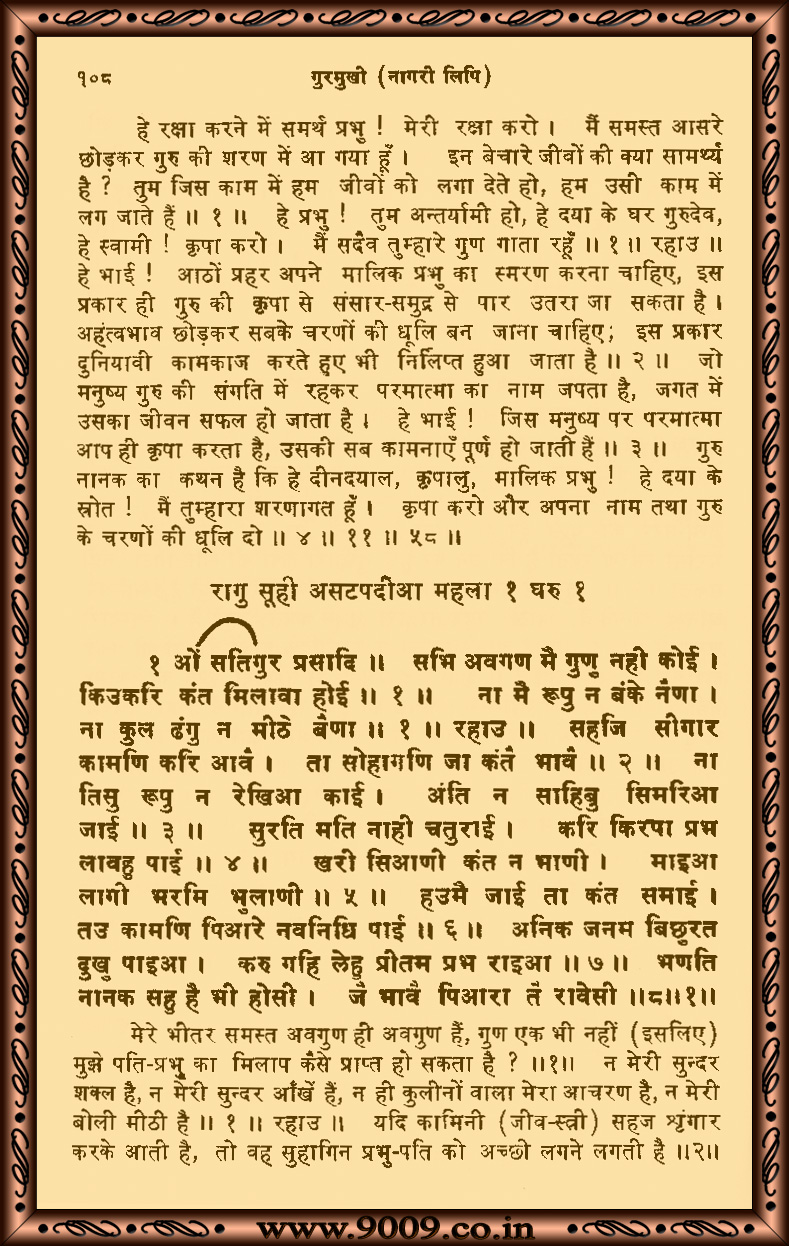 १०८ गुरमुखी (नागरी लिपि)
हे रक्षा करने में समर्थ प्रभु ! मेरी रक्षा करो । मैं समस्त आसरे
छोड़कर गुरु की शरण में आ गया हूँ । इन बेचारे जीवों की क्या सामर्थ्य
है ? तुम जिस काम में हम जीवों को लगा देते हो, हम उसी काम में
लग जाते हैं ॥ १ ॥ हे प्रभु ! तुम अन्तर्यामी हो, हे दया के घर गुरुदेव,
हे स्वामी ! कृपा करो । मैं सदैव तुम्हारे गुण गाता रहूँ ॥ १ ॥ रहाउ ॥
हे भाई ! आठों प्रहर अपने मालिक प्रभु का स्मरण करना चाहिए, इस
प्रकार ही गुरु की कृपा से संसार-समुद्र से पार उतरा जा सकता है ।
अहंत्वभाव छोड़कर सबके चरणों की धूलि बन जाना चाहिए; इस प्रकार
दुनियावी कामकाज करते हुए भी निर्लिप्त हुआ जाता है ॥ २ ॥ जो
मनुष्य गुरु की संगति में रहकर परमात्मा का नाम जपता है, जगत में
उसका जीवन सफल हो जाता है । हे भाई ! जिस मनुष्य पर परमात्मा
आप ही कृपा करता है, उसकी सब कामनाएँ पूर्ण हो जाती हैं ॥ ३ ॥ गुरु
नानक का कथन है कि हे दीनदयाल, कृपालु, मालिक प्रभु ! हे दया के
स्रोत ! मैं तुम्हारा शरणागत हूँ । कृपा करो और अपना नाम तथा गुरु
के चरणों की धूलि दो ॥ ४ ॥ ११ ॥ ५८ ॥
रागु सूही असटपदीआ महला १ घरु १
१ ओं सतिगुर प्रसादि ॥ सभि अवगण मै गुणु नही कोई ।
किउकरि कंत मिलावा होई ॥ १ ॥ ना मै रूपु न बंके नैणा ।
ना कुल ढंगु न मीठे बैणा ॥ १ ॥ रहाउ ॥ सहजि सीगार
कामणि करि आवै । ता सोहागणि जा कंतै भावै ॥ २ ॥ ना
तिसु रूपु न रेखिआ काई । अंति न साहिबु सिमरिआ
जाई ॥ ३ ॥ सुरति मति नाही चतुराई । करि किरपा प्रभ
लावहु पाई ॥ ४ ॥ खरी सिआणी कंत न भाणी । माइआ
लागी भरमि भुलाणी ॥ ५ ॥ हउमै जाई ता कंत समाई ।
तउ कामणि पिआरे नवनिधि पाई ॥ ६ ॥ अनिक जनम बिछुरत
दुखु पाइआ । करु गहि लेहु प्रीतम प्रभ राइआ ॥ ७ ॥ भणति
नानक सहु है भी होसी । जै भावै पिआरा तै रावेसी ॥८॥१॥
मेरे भीतर समस्त अवगुण ही अवगुण हैं, गुण एक भी नहीं (इसलिए)
मुझे पति-प्रभु का मिलाप कैसे प्राप्त हो सकता है ? ॥१॥ न मेरी सुन्दर
शक्ल है, न मेरी सुन्दर आँखें हैं, न ही कुलीनों वाला मेरा आचरण है, न मेरी
बोली मीठी है ॥ १ ॥ रहाउ ॥ यदि कामिनी (जीव-स्त्री) सहज श्रृंगार
करके आती है, तो वह सुहागिन प्रभु-पति को अच्छी लगने लगती है ॥२॥
www.9009.co.in